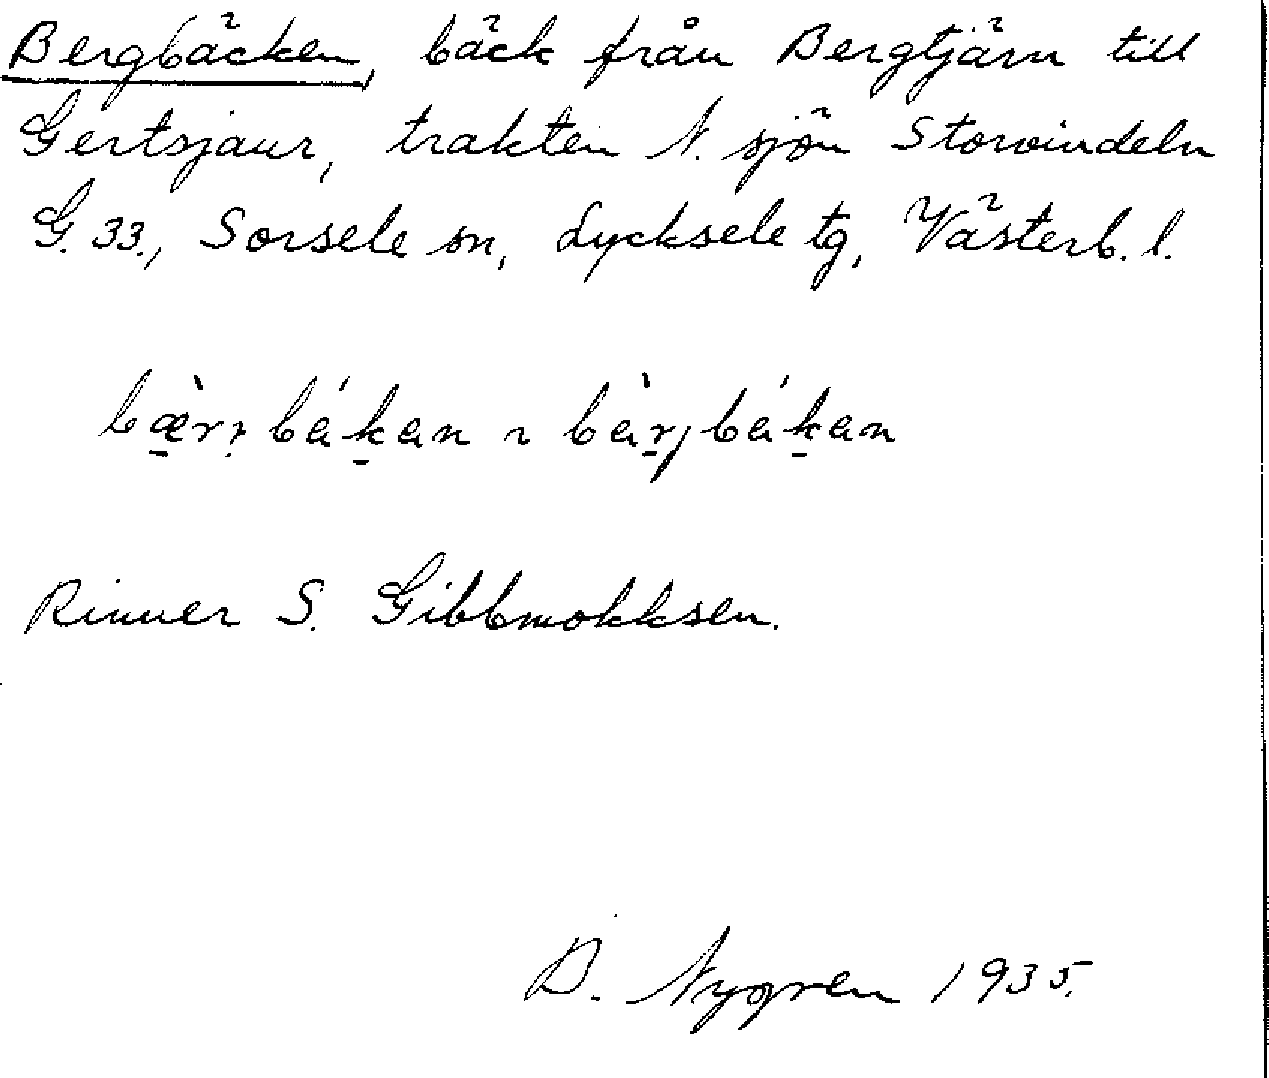 Bergbäcken, bäck från Bergtjärn till
Gertsjaur, trakten N. sjön Storvindeln
G. 33., Sorsele sn, Lycksele tg, Västerb. l.
Rinner S. Gibbmokksen.
B. Nygren 1935.